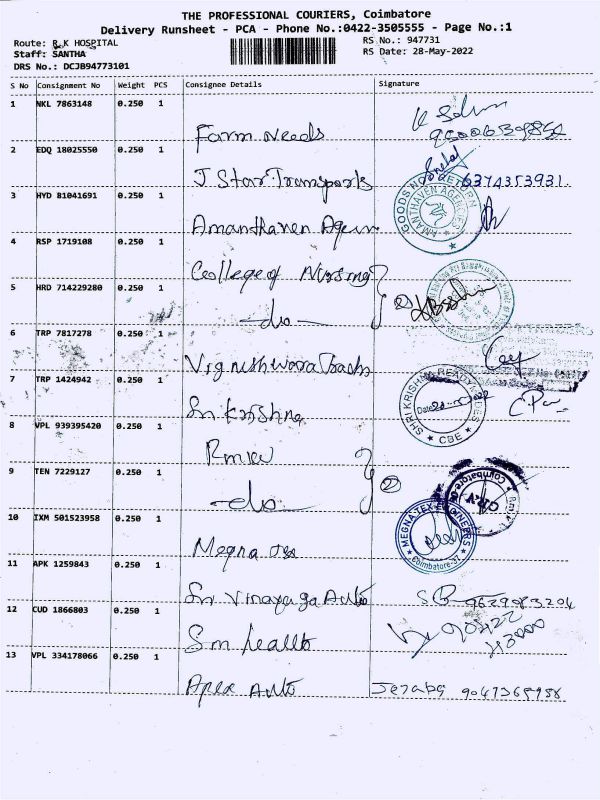 THE PROFESSIONAL COURIERS, Coimbatore
Delivery Runsheet - PCA - Phone No.:0422-3505555 - Page No.:1
Route: R.K HOSPITAL
RS No.: 947731
Staff: SANTHA
RS Date: 28-May-2022
DRS No.: DCJB94773101
S No Consignment No Weight PCS Consignee Details Signature
1 NKL 7863148 0.250 1
Farm Needs
2 EDQ 18025550 0.250 1
J Star Transports 6374353931.
3 HYD 81041691 0.250 1
GOODS NO RETURN
AMANTHAVEN AGENCIES
Amanthaven Agen
4 RSP 1719108 0.250 1
College of Nursing
5 HRD 714229280 0.250 1
-do- 2
6 TRP 7817278 0.250 1
Vigneshwara
7 TRP 1424942 0.250 1
SHRI KRISHNA READYMADES
Date
CBE
Sri Krishna
8 VPL 939395420 0.250 1
9 TEN 7229127 0.250 1
-do- 2
Coimbatore
10 IXM 501523958 0.250 1
MEGNA TEX ENGINEERS
Coimbatore-37
Megna Tex
11 APK 1259843 0.250 1
Sri Vinayaga Auto 9629083204
12 CUD 1866803 0.250 1
Sm Health
13 VPL 334178066 0.250 1
Apex Auto